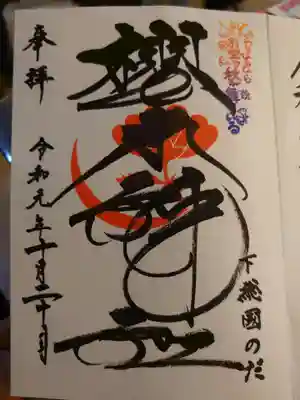 櫻木神社
下総國のだ
奉拝
令和元年十月二十日